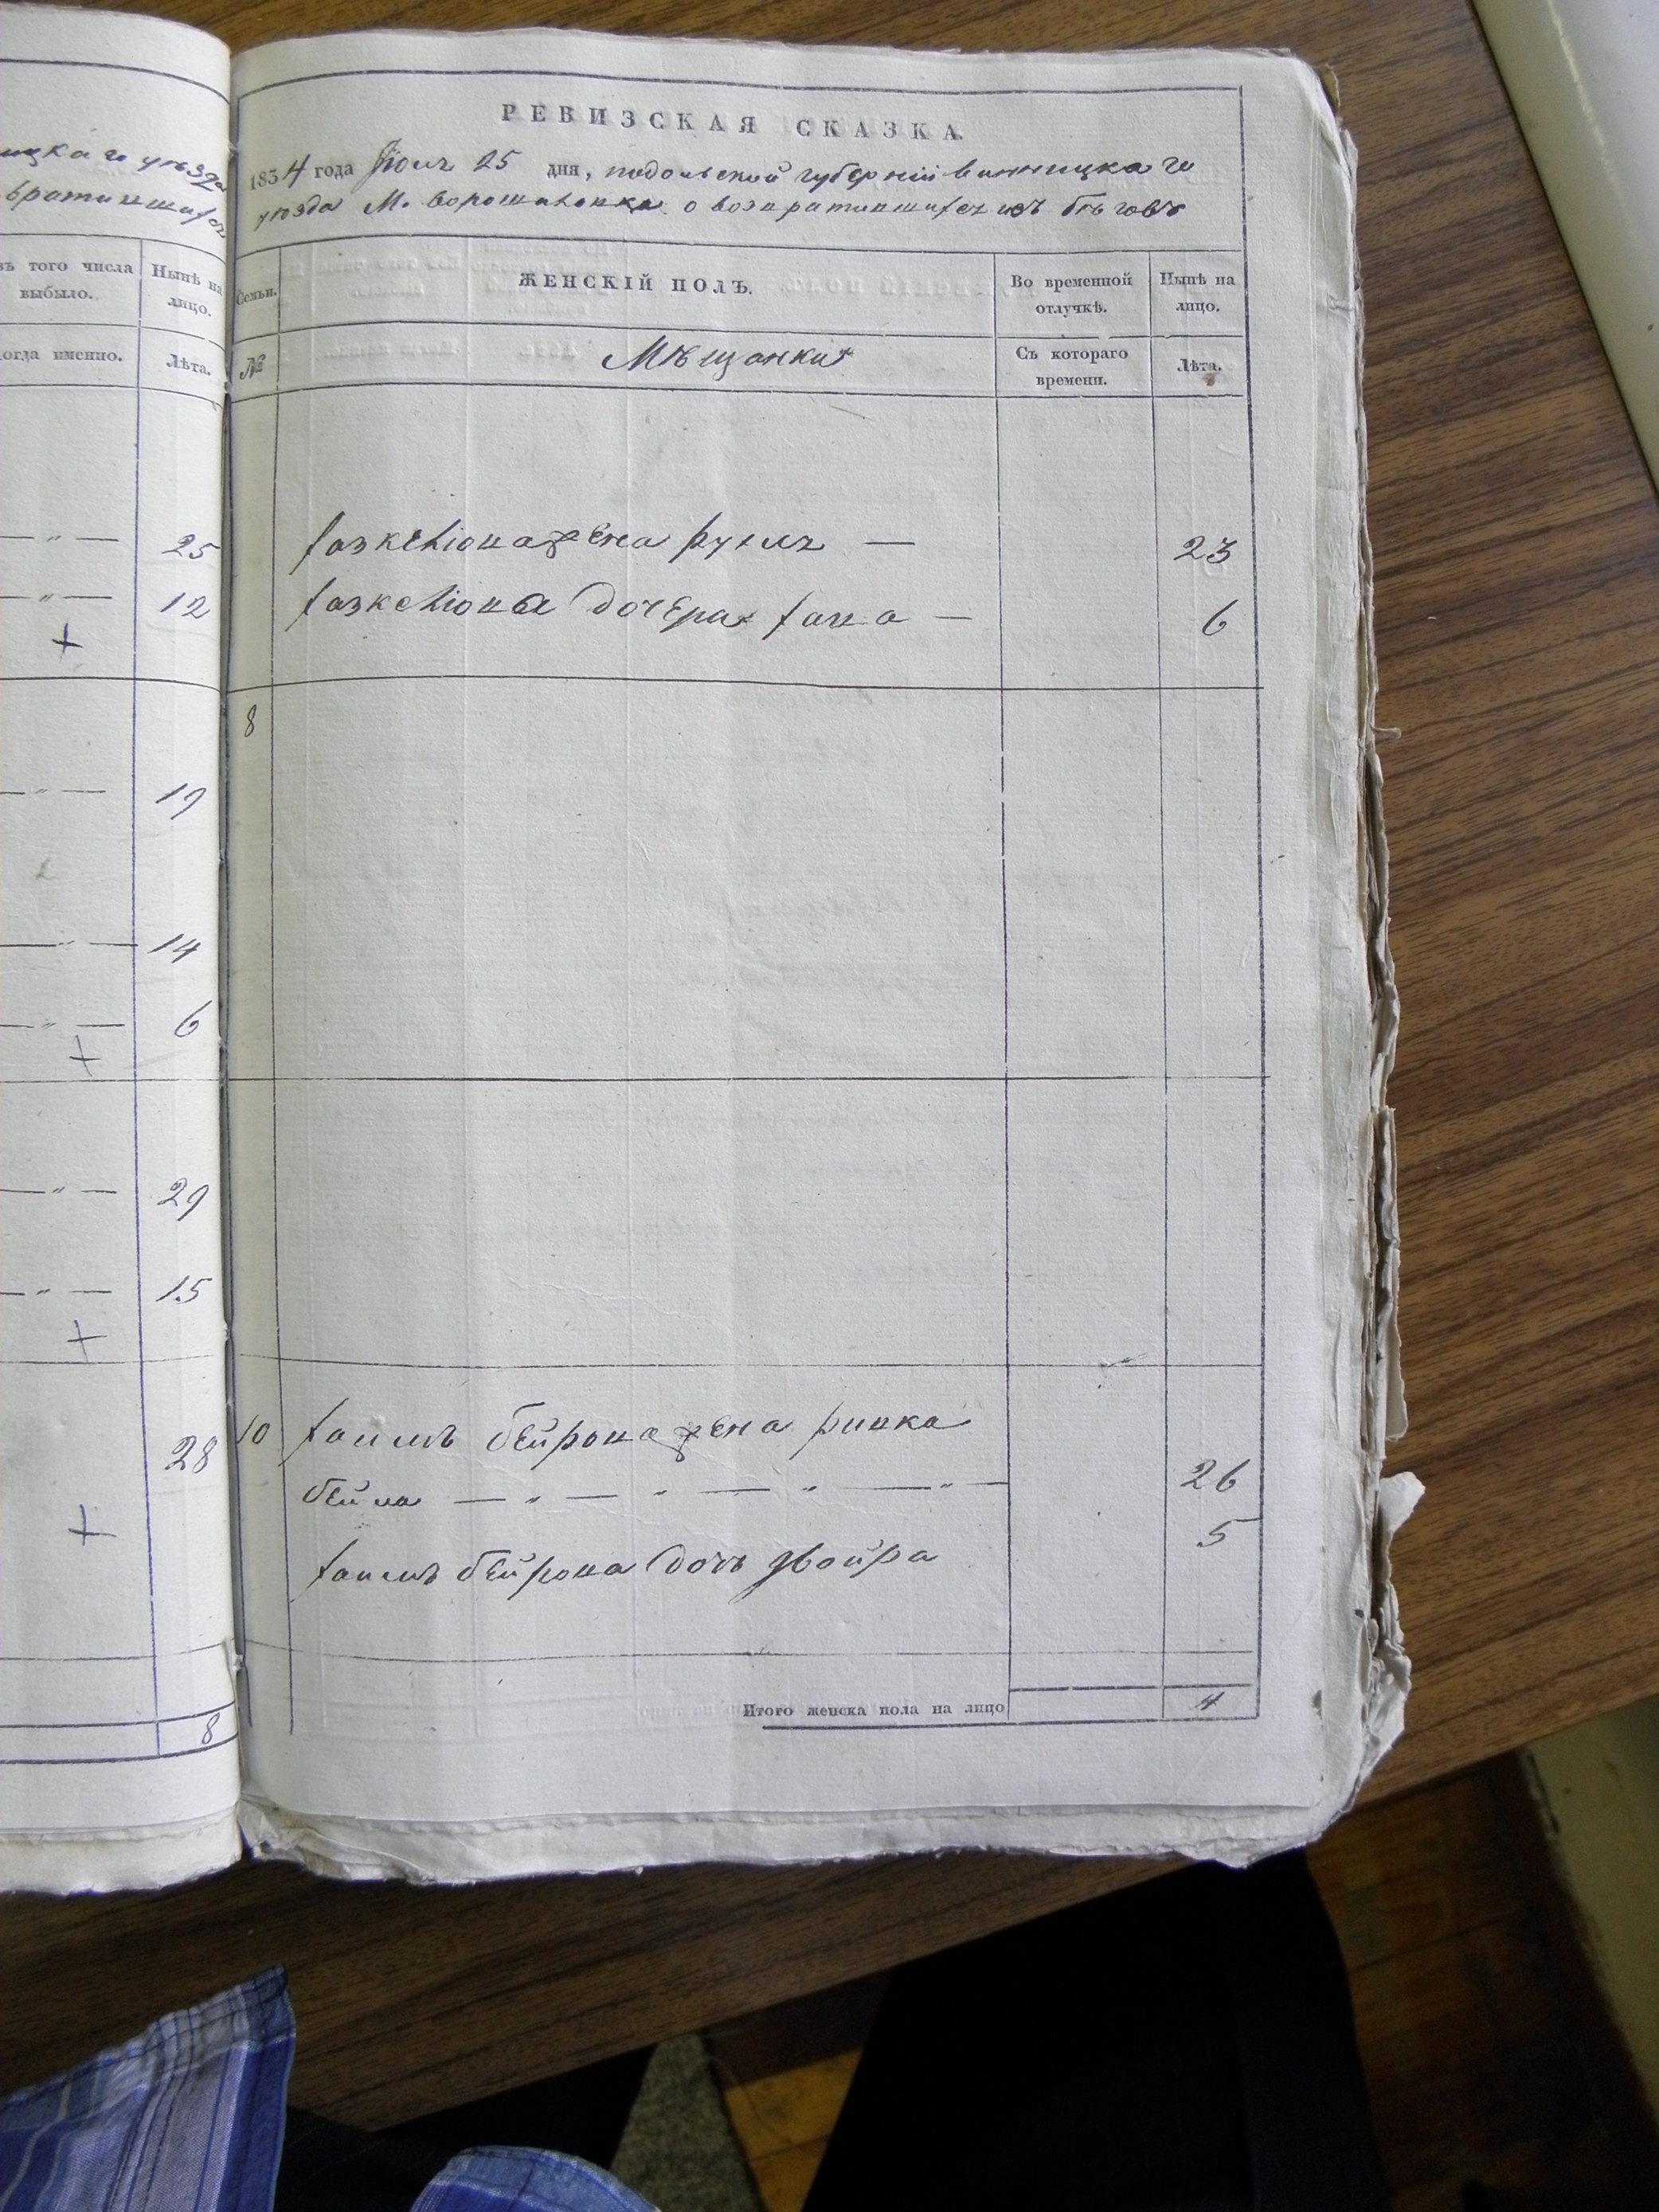 ицкаго уѣзда
вратившихся
зъ того числа выбыло.
Нынѣ на лицо.
огда именно.
Лѣта.
— " — 25
— " — 12
+
— " — 19
— " — 14
— " — 6
+
— " — 29
— " — 15
+
28
+
8
РЕВИЗСКАЯ СКАЗКА.
1834 года Июля 25 дня, подольской губерніи винницкаго
уѣзда М. Ворошиловка о возвратившихся изъ бѣговъ
Семьи.
ЖЕНСКІЙ ПОЛЪ.
Во временной отлучкѣ.
Нынѣ на лицо.
№
Мѣщанки
Съ котораго времени.
Лѣта.
жена — 23
дочера хана — 6
8
10 хаимъ жена ривка
бейла — " — " — " — " — 26
хаимъ дочь двойра 5
Итого женска пола на лицо 4